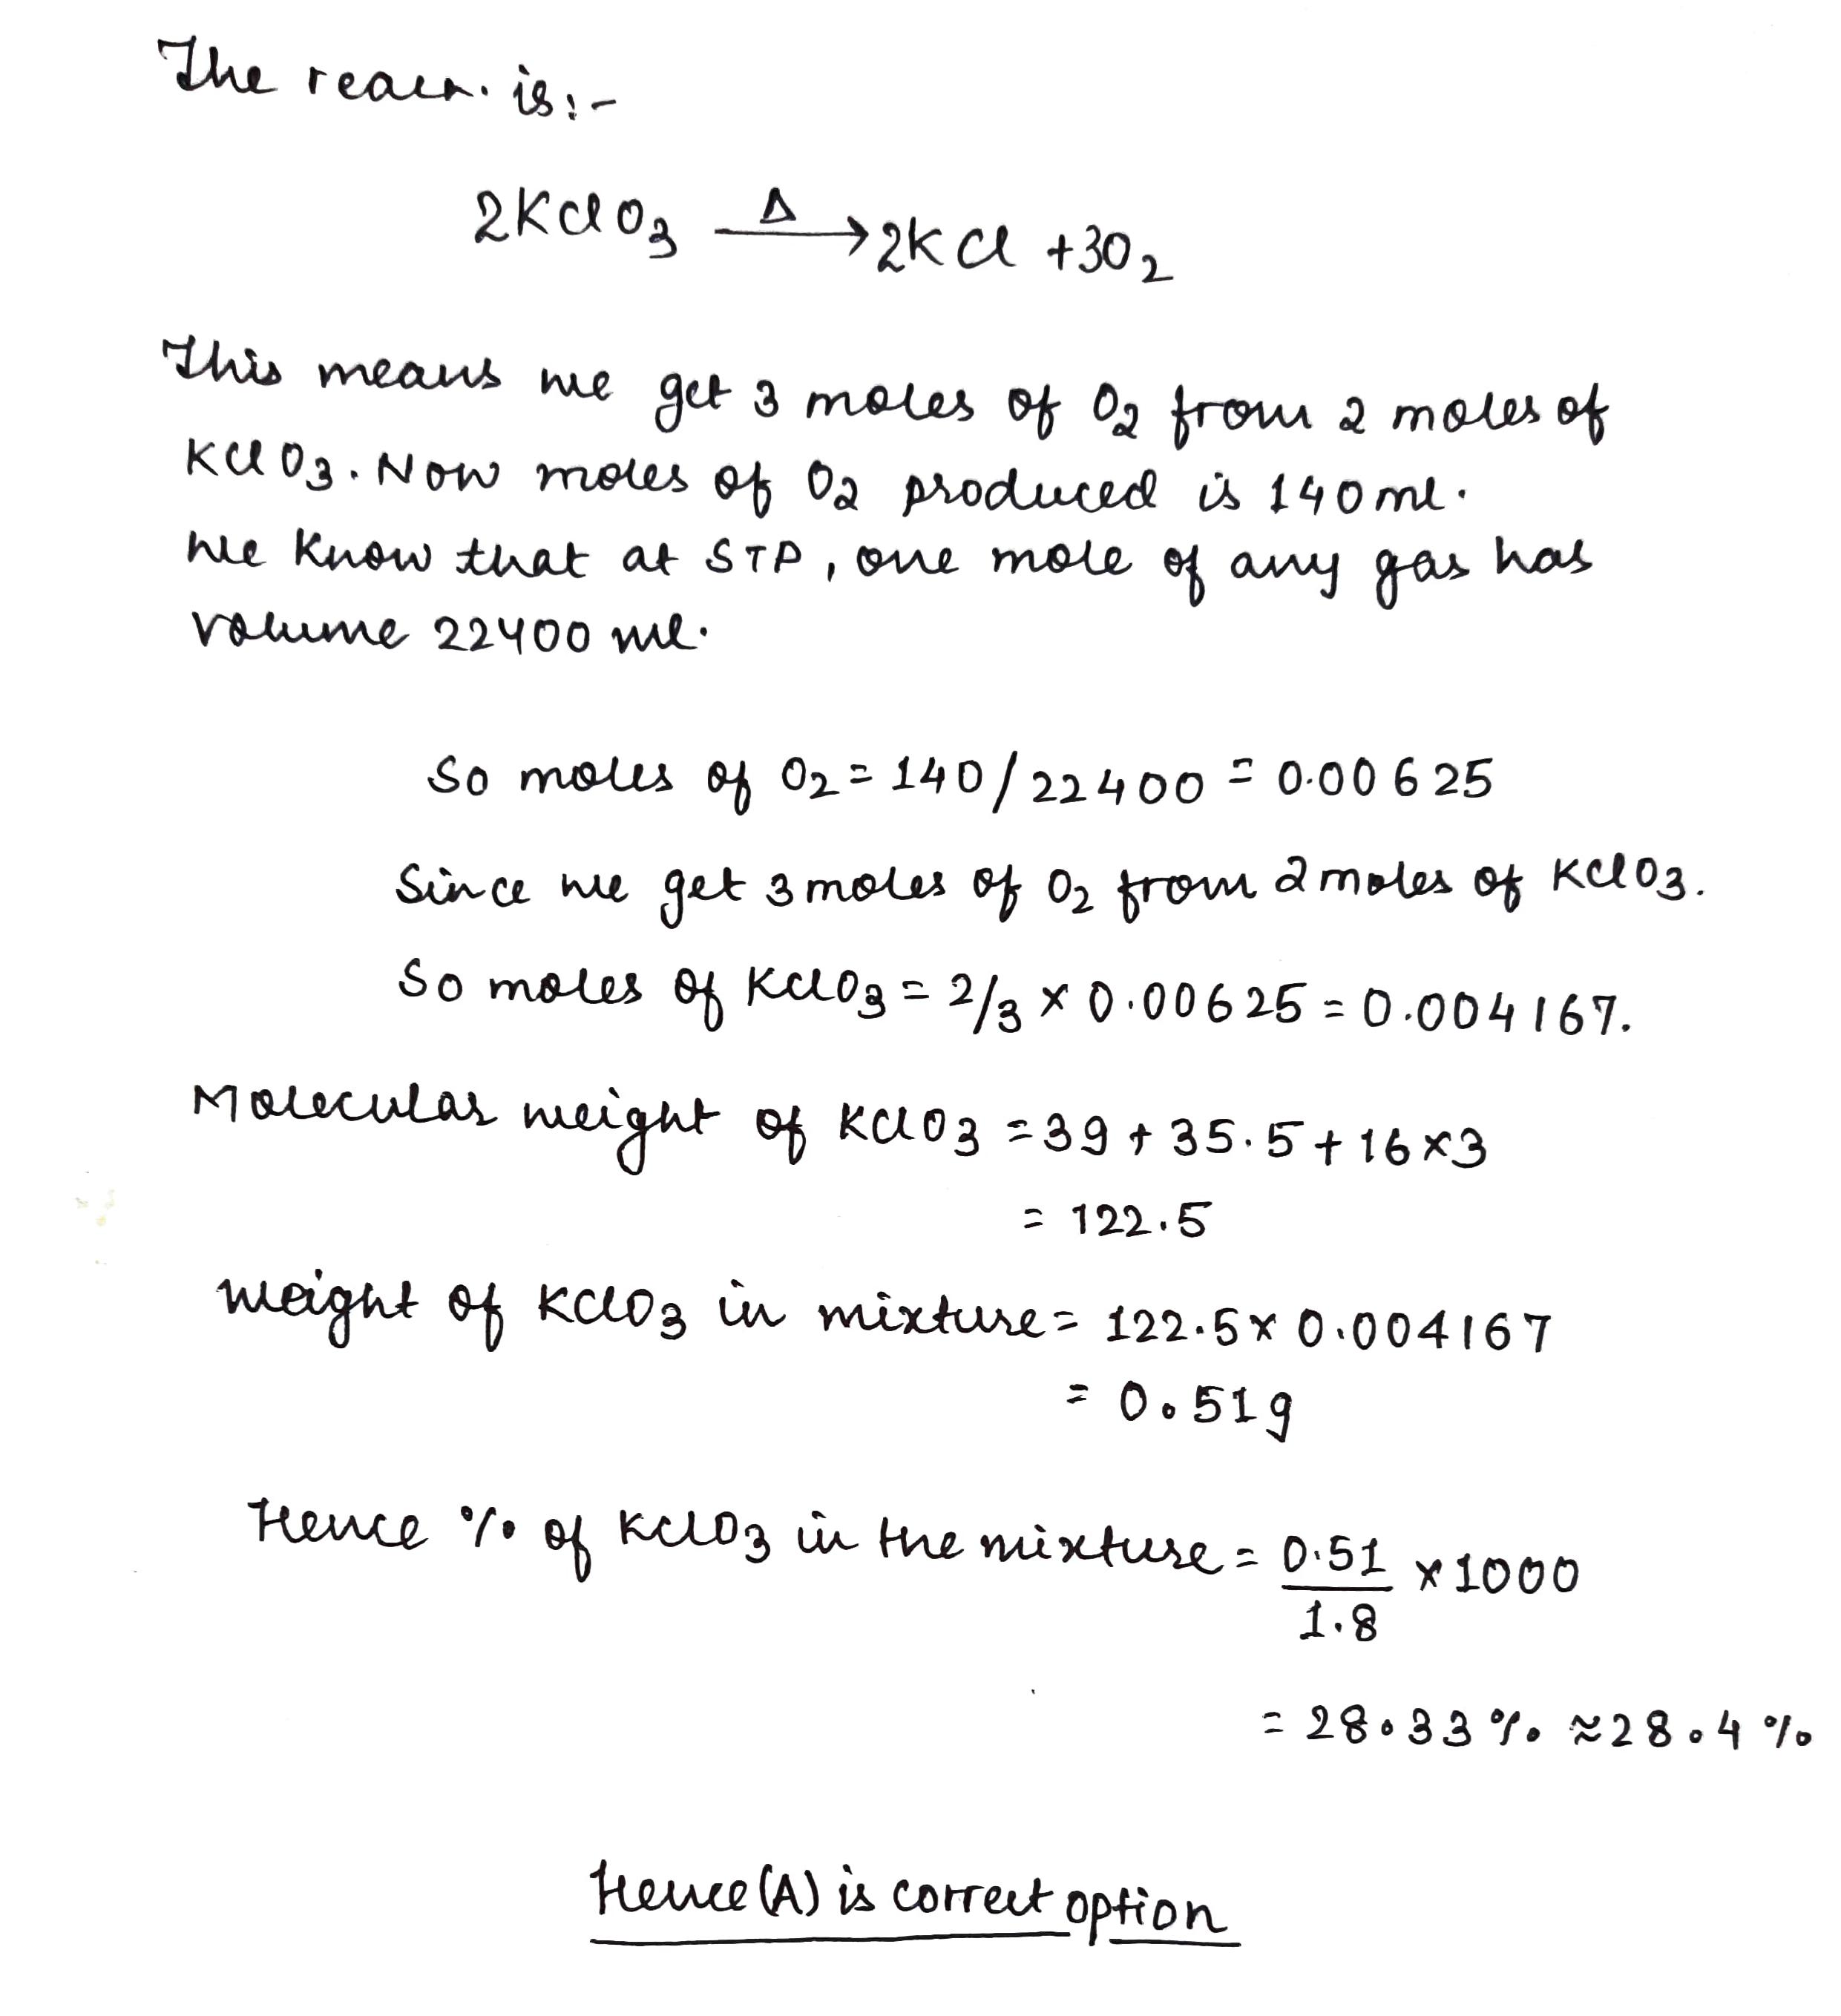 The reacn. is:-
2KClO3 Δ→ 2KCl +3O2
This means we get 3 moles of O2 from 2 moles of
KClO3. Now moles of O2 produced is 140 ml.
We know that at STP, one mole of any gas has
volume 22400 ml.
So moles of O2 = 140/22400 = 0.00625
Since we get 3 moles of O2 from 2 moles of KClO3.
So moles of KClO3 = 2/3 × 0.00625 = 0.004167.
Molecular weight of KClO3 = 39 + 35.5 + 16×3
= 122.5
weight of KClO3 in mixture = 122.5 × 0.004167
= 0.51g
Hence % of KClO3 in the mixture = 0.51/1.8 × 1000
= 28.33 % ≈ 28.4 %
Hence (A) is correct option